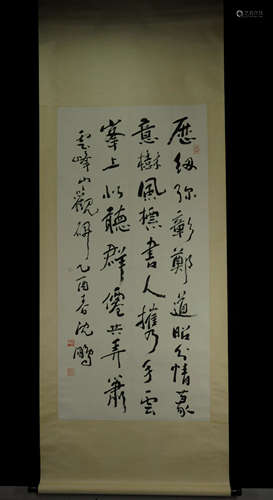 歷劫弥彰鄭道昭情豪
意樹風標書人攜手雲
峯上似聽群僊共弄簫
雲峰山觀碑乙酉春沈鵬